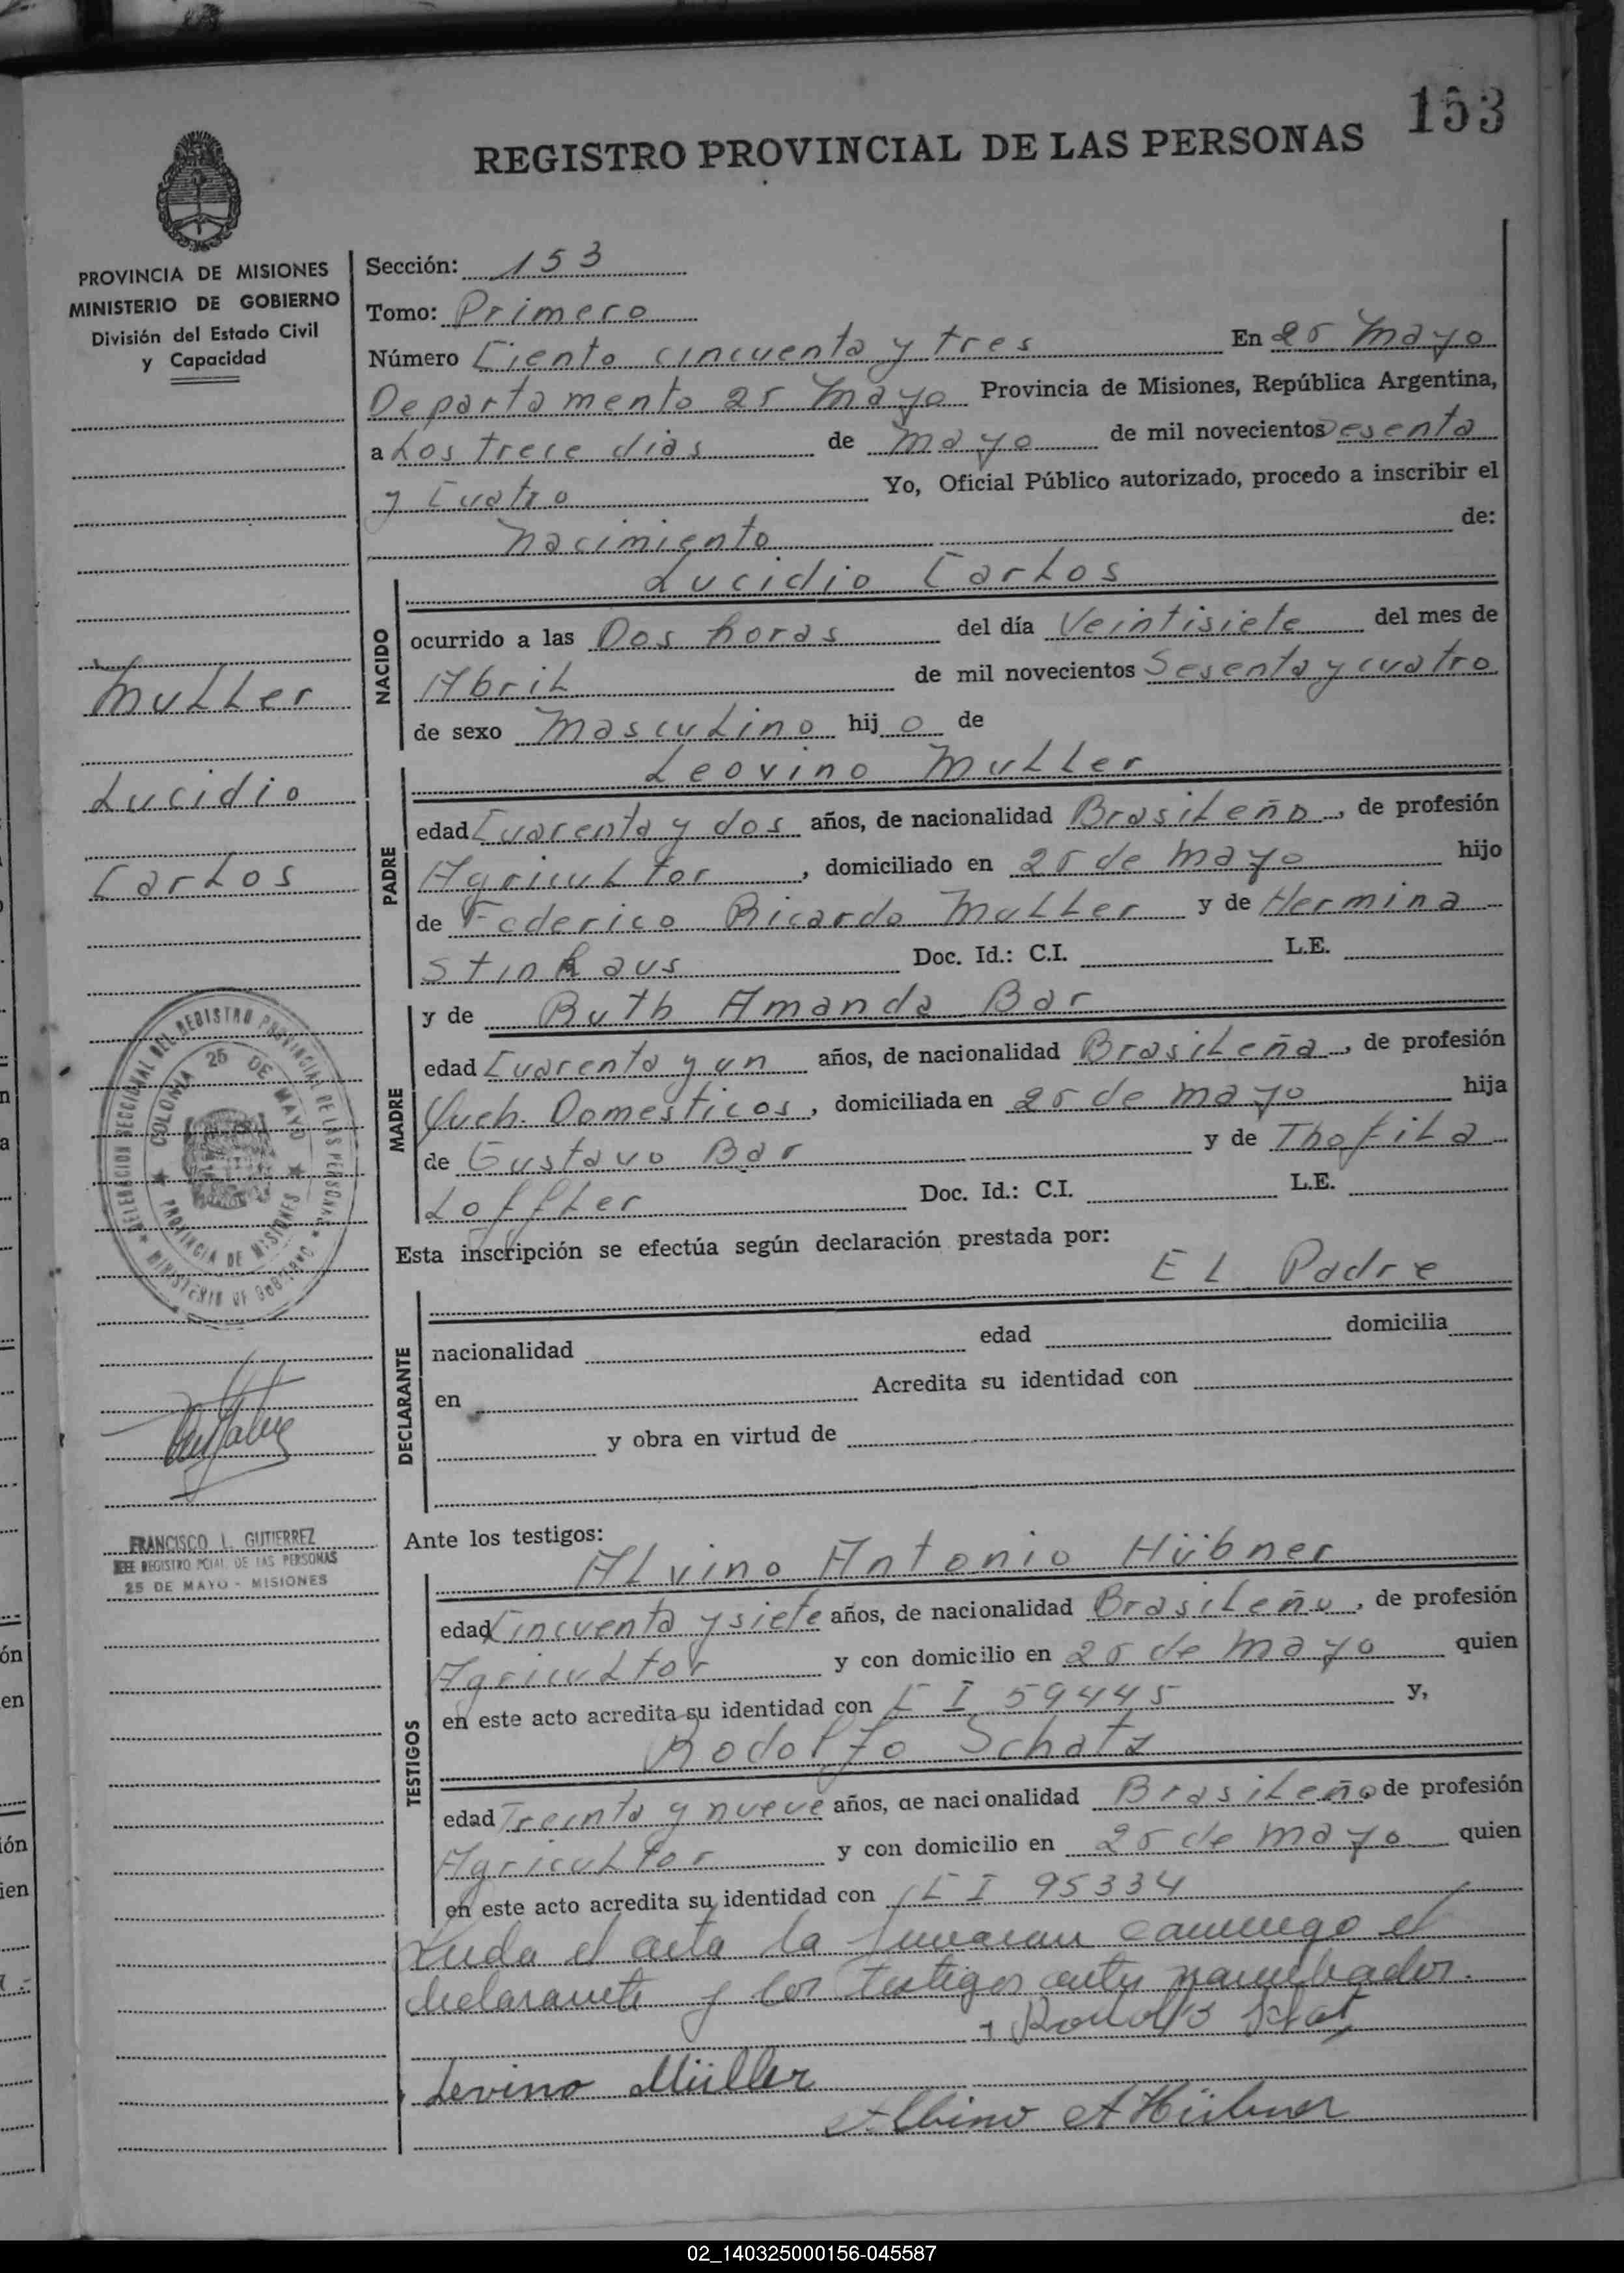 153
REGISTRO PROVINCIAL DE LAS PERSONAS
PROVINCIA DE MISIONES
MINISTERIO DE GOBIERNO
División del Estado Civil
y Capacidad
Sección: 153
Tomo: Primero
Número Ciento cincuenta y tres En 25 Mayo
Departamento 25 Mayo Provincia de Misiones, República Argentina,
a Los trece dias de mayo de mil novecientos Sesenta
y Cuatro Yo, Oficial Público autorizado, procedo a inscribir el
nacimiento de:
Lucidio Carlos
NACIDO
ocurrido a las Dos horas del día Veintisiete del mes de
Abril de mil novecientos Sesenta y cuatro
de sexo Masculino hijo de
Muller
Lucidio
Carlos
Leovino Muller
PADRE
edad Cuarenta y dos años, de nacionalidad Brasileño, de profesión
Agricultor, domiciliado en 25 de Mayo hijo
de Federico Ricardo Muller y de Hermina
Stinkaus Doc. Id.: C.I. L.E.
y de Ruth Amanda Bar
MADRE
edad Cuarenta y un años, de nacionalidad Brasileña, de profesión
Queh. Domesticos, domiciliada en 25 de mayo hija
de Gustavo Bar y de Thofila
Loffler Doc. Id.: C.I. L.E.
DELEGACION SECCIONAL DEL REGISTRO PROVINCIAL DE LAS PERSONAS
MINISTERIO DE GOBIERNO
COLONIA 25 DE MAYO
PROVINCIA DE MISIONES
Esta inscripción se efectúa según declaración prestada por:
El Padre
DECLARANTE
nacionalidad edad domicilia
en Acredita su identidad con
y obra en virtud de
FRANCISCO L. GUTIERREZ
JEFE REGISTRO PCIAL. DE LAS PERSONAS
25 DE MAYO - MISIONES
Ante los testigos:
Alvino Antonio Hübner
TESTIGOS
edad Cincuenta y siete años, de nacionalidad Brasileño, de profesión
Agricultor y con domicilio en 25 de Mayo quien
en este acto acredita su identidad con C I 59445 y,
Rodolfo Schatz
edad Treinta y nueve años, de nacionalidad Brasileño de profesión
Agricultor y con domicilio en 25 de Mayo quien
en este acto acredita su identidad con C I 95334
Leida el acta la firmaran conmigo el
declarante y los testigos antes nombrados.
Rodolfo Schatz
Levino Müller
Albino A Hübner
02_140325000156-045587